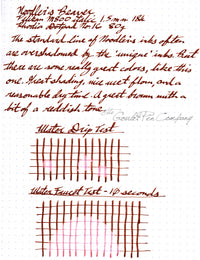 Noodler's Beaver
Pelikan M800 Italic, 1.5mm 18k
Rhodia Dotpad No. 16 80g
The standard line of Noodler's inks often
are overshadowed by the 'unique' inks. But
there are some really great colors, like this
one. Great shading, nice wet flow, and a
reasonable dry time. A great brown with a
bit of a reddish tone.
The Goulet Pen Company
Water Drip Test
Water Faucet Test - 10 seconds